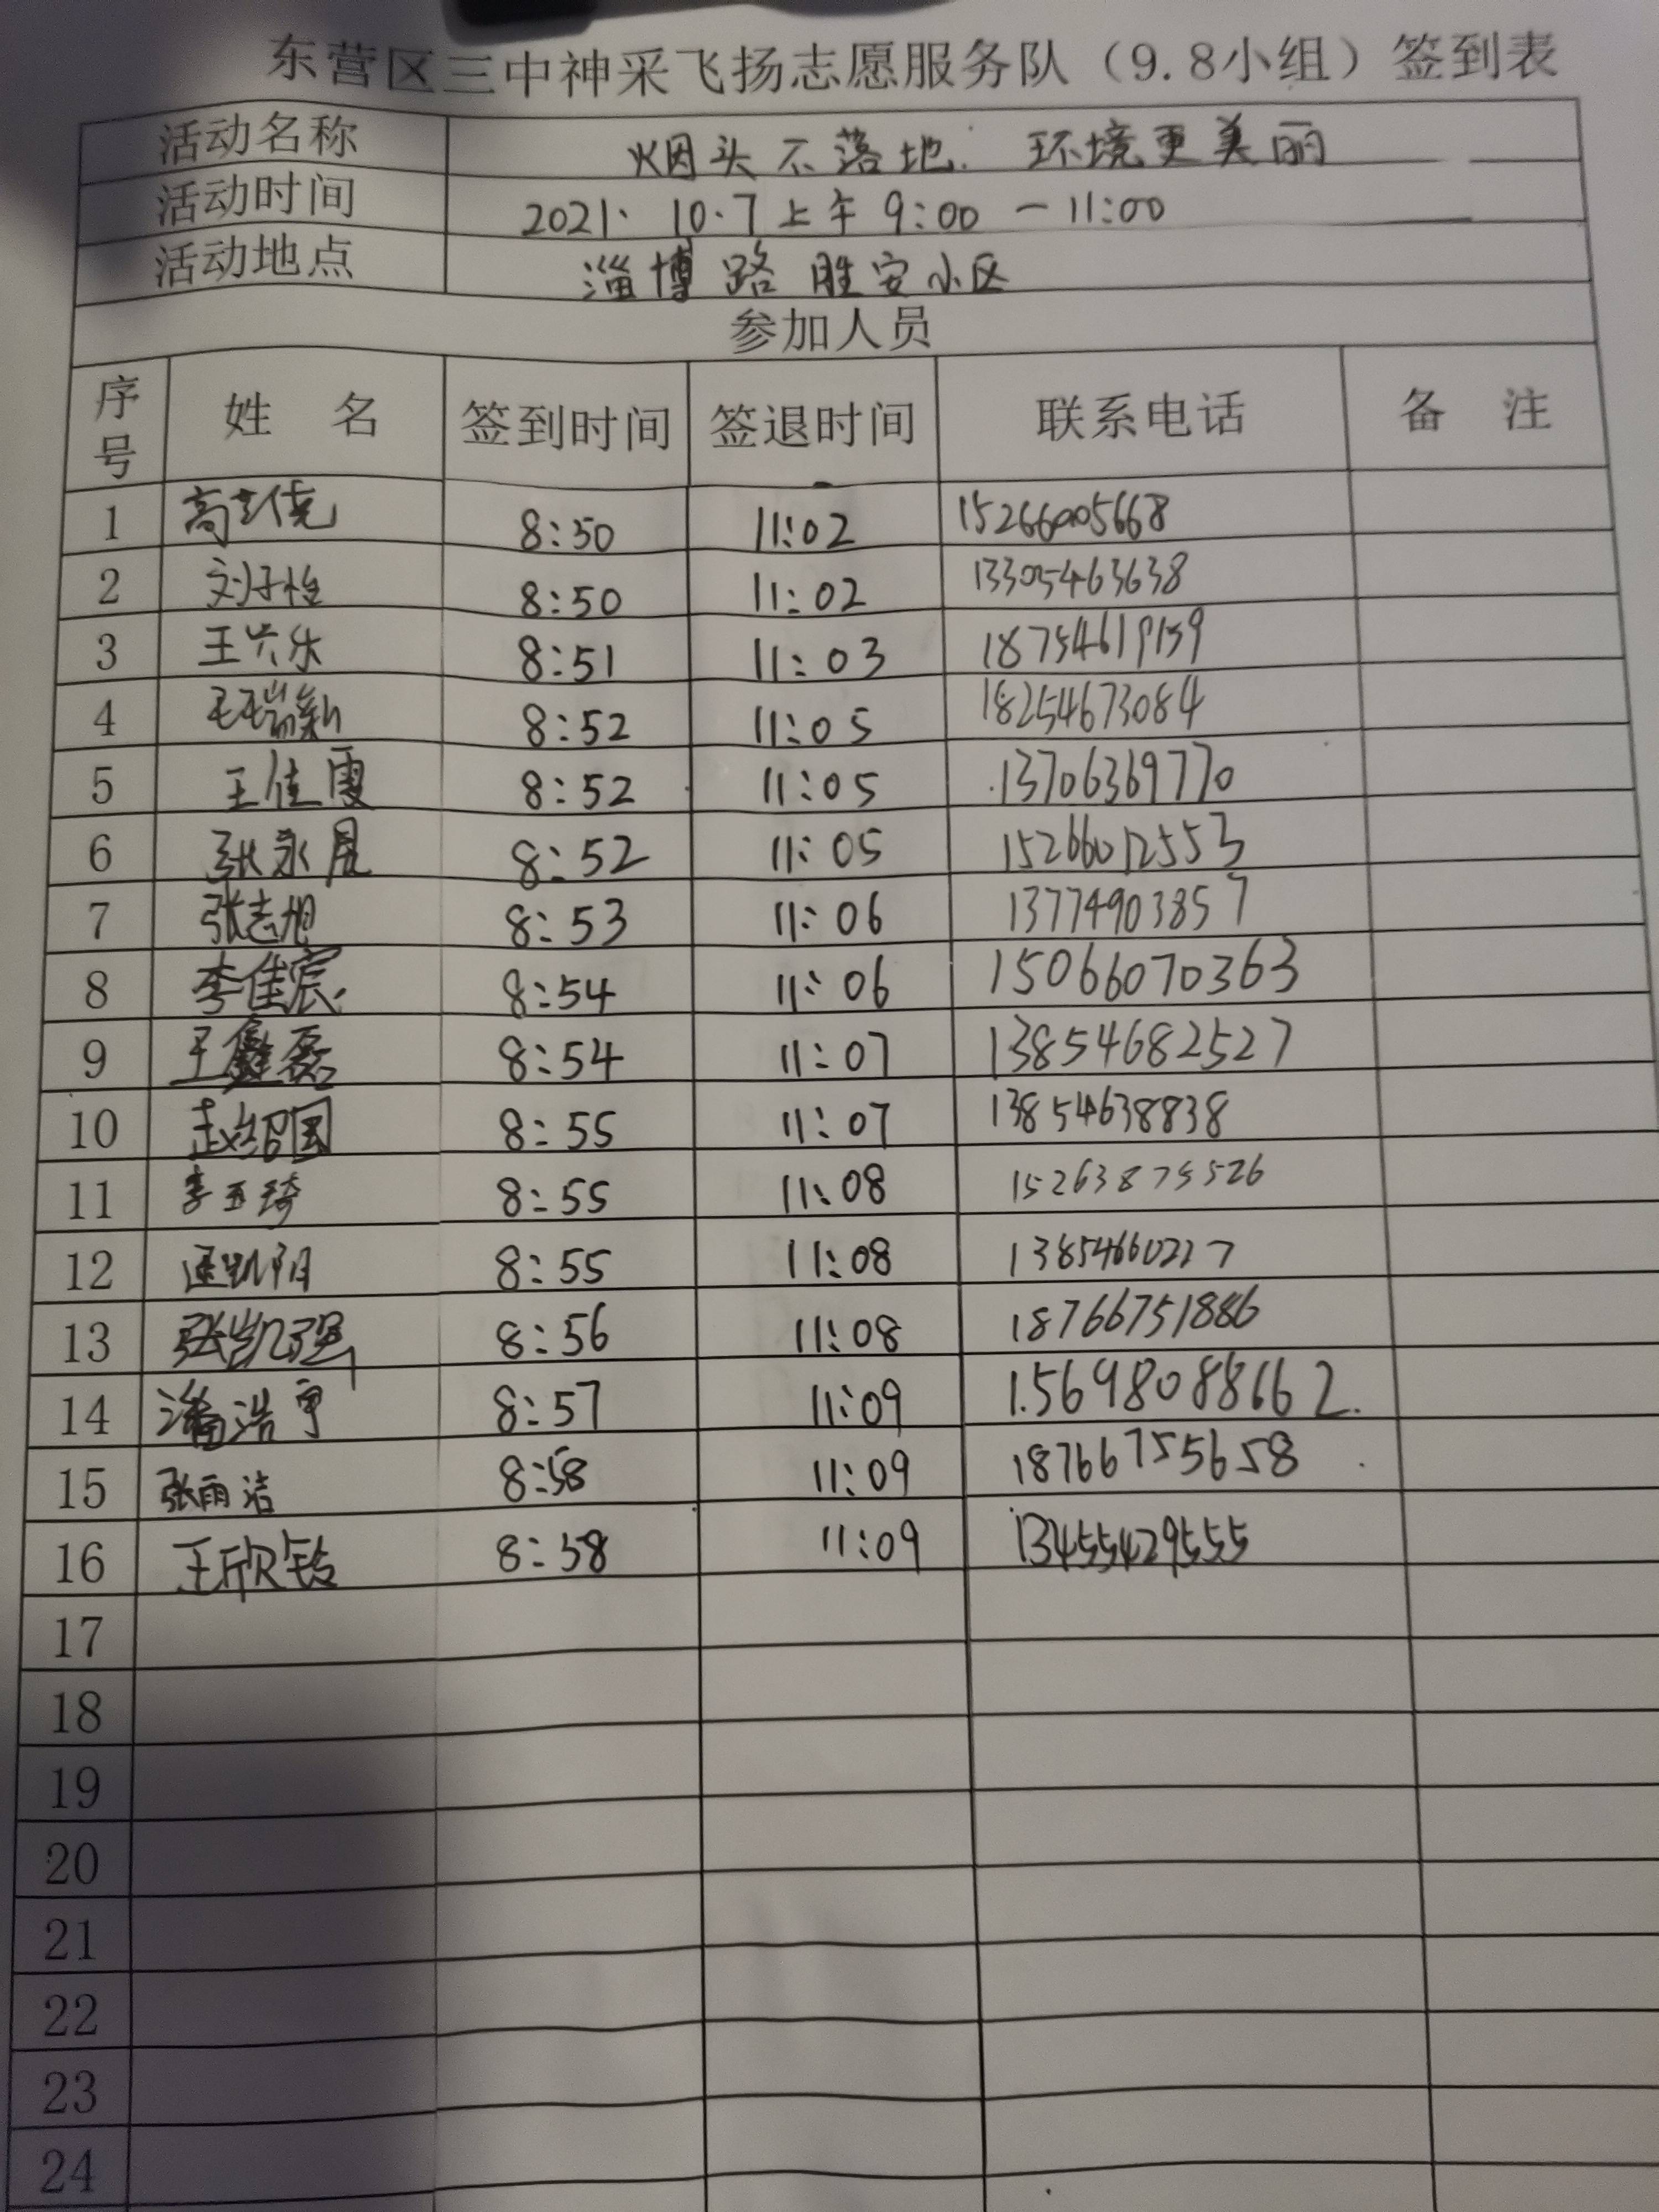 东营区三中神采飞扬志愿服务队（9.8小组）签到表
活动名称 烟头不落地. 环境更美丽
活动时间 2021. 10.7上午 9:00 - 11:00
活动地点 淄博路 胜安小区
参加人员
序号 姓 名 签到时间 签退时间 联系电话 备 注
1 8:50 11:02 15266005668
2 8:50 11:02 13305463638
3 8:51 11:03 18754619159
4 8:52 11:05 18254673084
5 王佳霞 8:52 11:05 13706369770
6 张永晨 8:52 11:05 15266012553
7 张志旭 8:53 11:06 13774903857
8 李佳宸 8:54 11:06 15066070363
9 王鑫磊 8:54 11:07 13854682527
10 赵绍国 8:55 11:07 13854638838
11 李玉琦 8:55 11:08 15263875526
12 8:55 11:08 13854660227
13 张凯强 8:56 11:08 18766751886
14 潘浩宇 8:57 11:09 15698088662
15 张雨洁 8:58 11:09 18766755658
16 王欣铃 8:58 11:09 13455429555
17
18
19
20
21
22
23
24